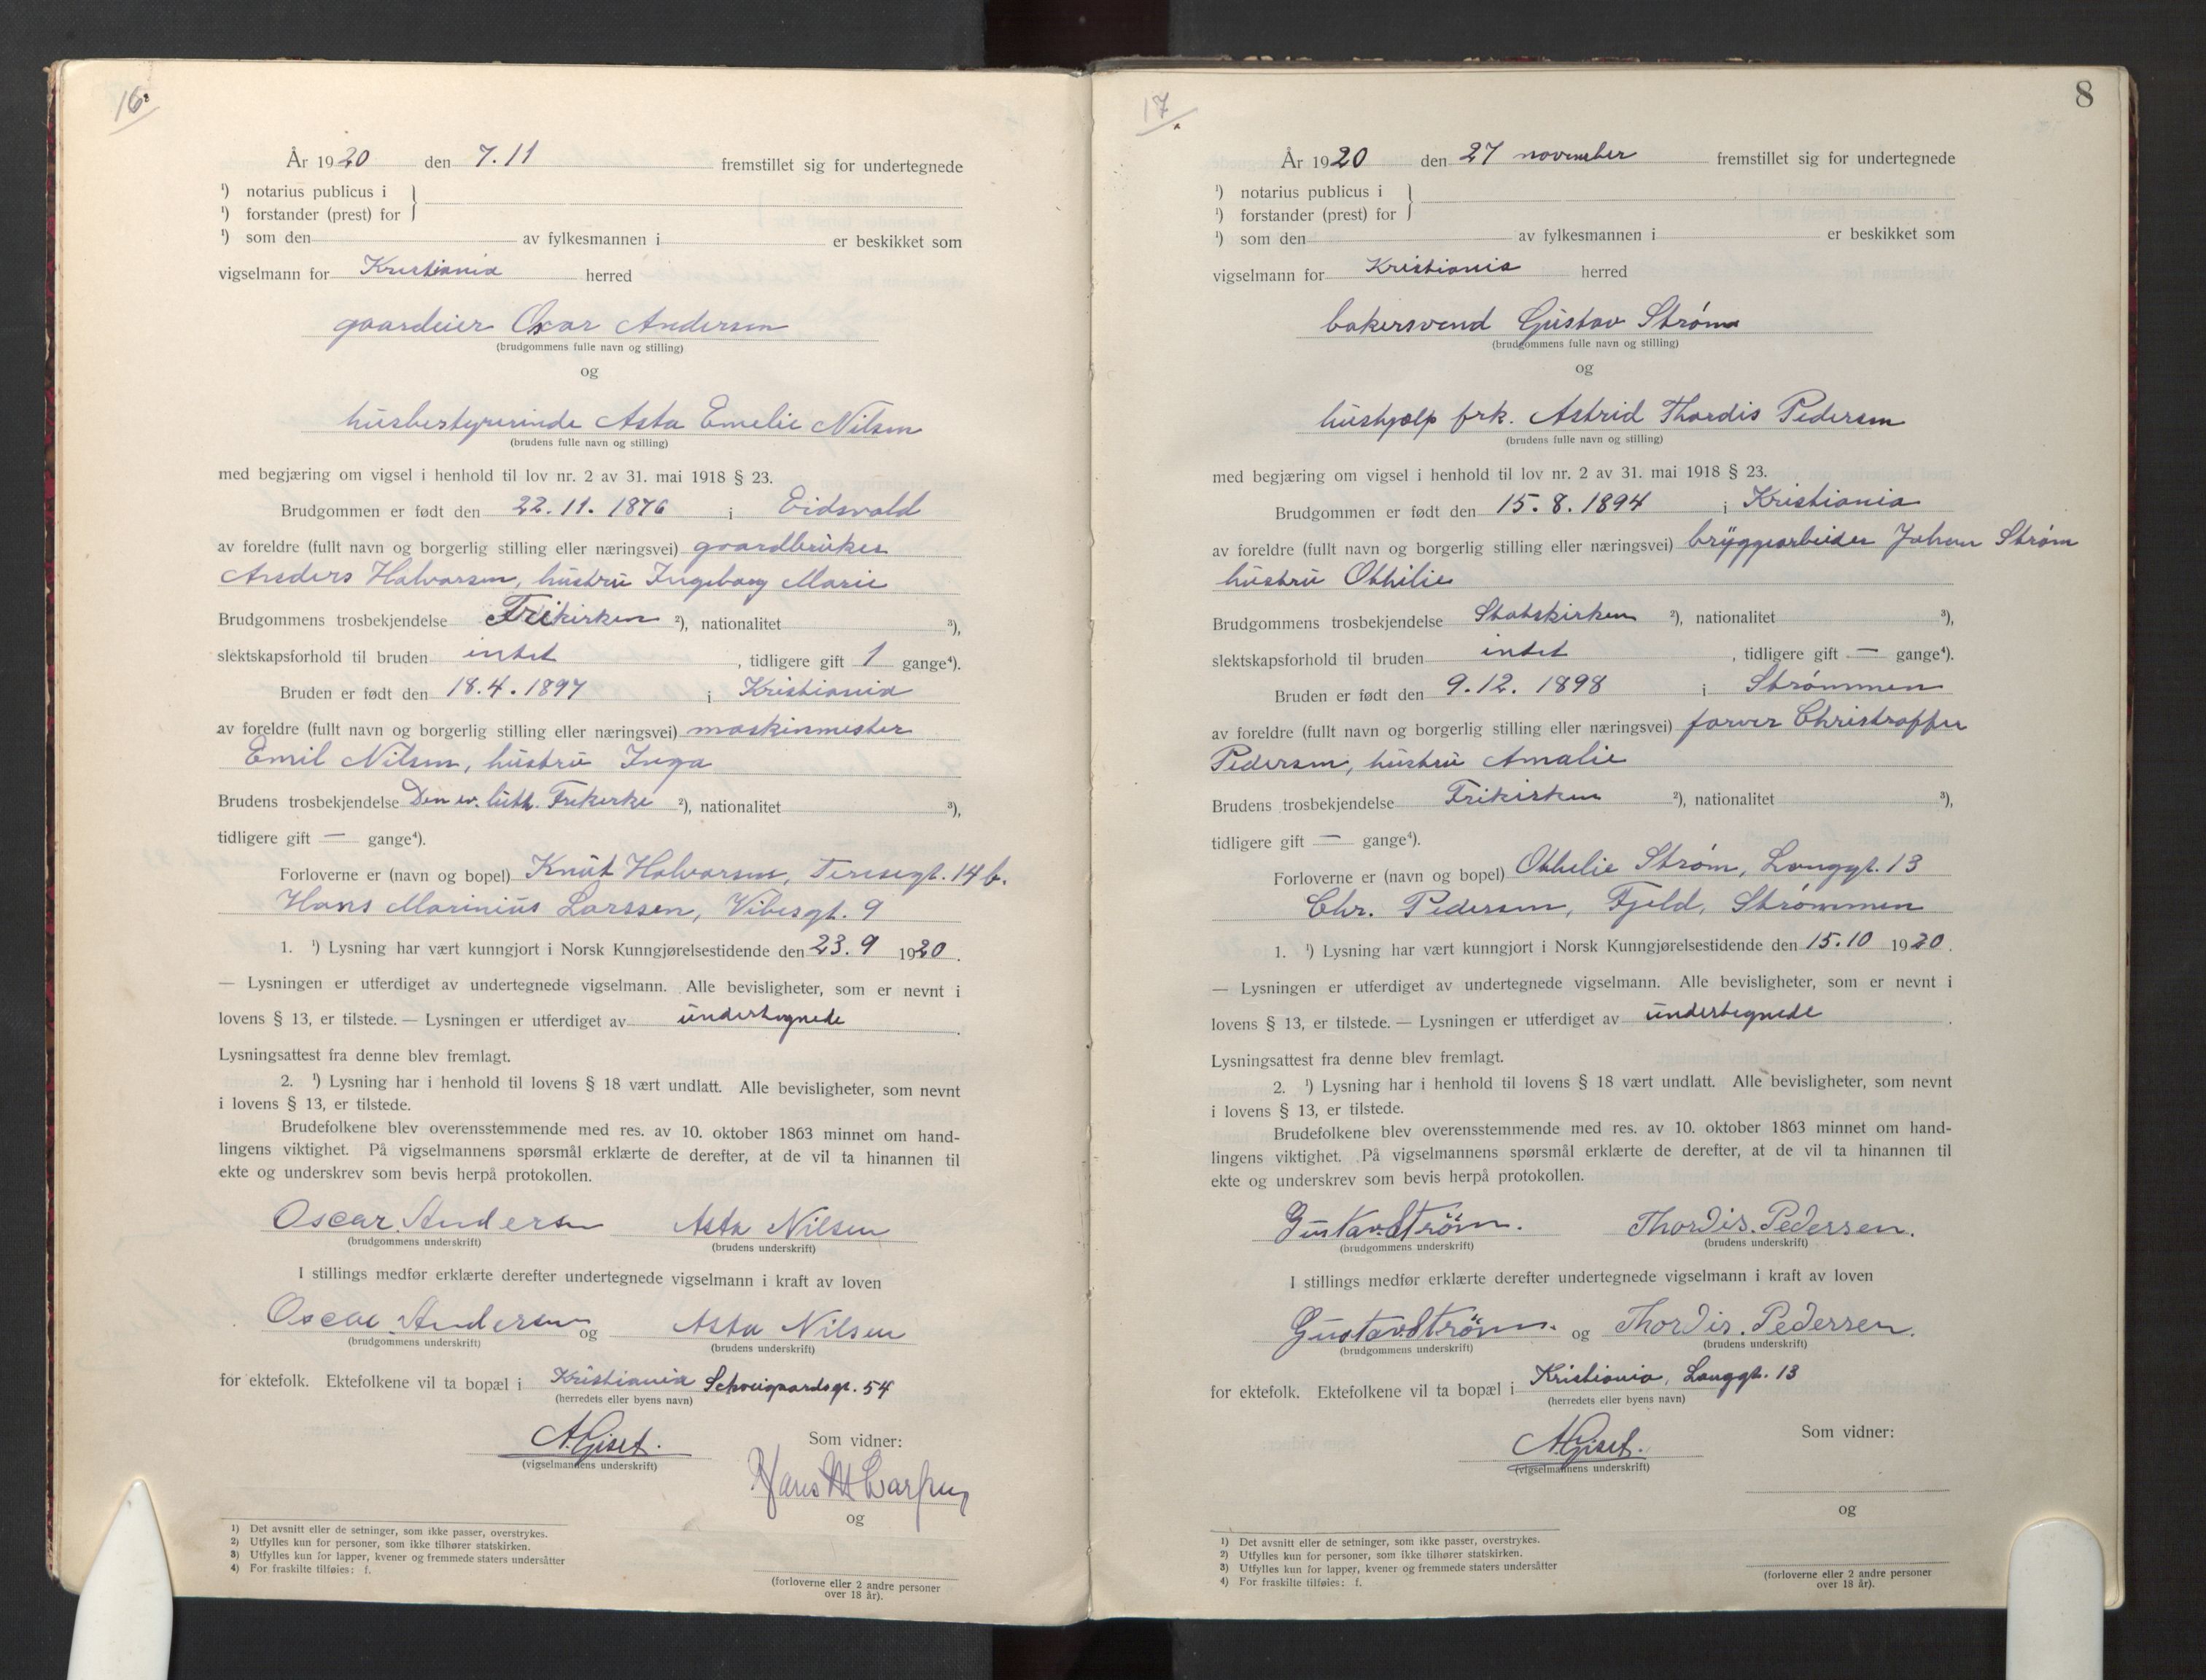 16.
År 1920 den 7.11 fremstillet sig for undertegnede
¹) notarius publicus i
¹) forstander (prest) for
¹) som den av fylkesmannen i er beskikket som
vigselmann for Kristiania herred
gaardeier Oscar Andersen
(brudgommens fulle navn og stilling)
og
husbestyrerinde Asta Emelie Nilsen
(brudens fulle navn og stilling)
med begjæring om vigsel i henhold til lov nr. 2 av 31. mai 1918 § 23.
Brudgommen er født den 22.11.1876 i Eidsvold
av foreldre (fullt navn og borgerlig stilling eller næringsvei) gaardbruker
Anders Halvorsen, hustru Ingeborg Marie
Brudgommens trosbekjendelse Frikirken ²), nationalitet ³),
slektskapsforhold til bruden intet , tidligere gift 1 gange⁴).
Bruden er født den 18.4.1897 i Kristiania
av foreldre (fullt navn og borgerlig stilling eller næringsvei) maskinmester
Emil Nilsen, hustru Inga
Brudens trosbekjendelse Den ev. luth. Frikirke ²), nationalitet ³),
tidligere gift — gange⁴).
Forloverne er (navn og bopel) Knut Halvorsen, Teresegt. 14 b.
Hans Marinius Larssen, Vibesgt. 9
1. ¹) Lysning har vært kunngjort i Norsk Kunngjørelsestidende den 23.9 1920.
— Lysningen er utferdiget av undertegnede vigselmann. Alle bevisligheter, som er nevnt i
lovens § 13, er tilstede. — Lysningen er utferdiget av undertegnede.
Lysningsattest fra denne blev fremlagt.
2. ¹) Lysning har i henhold til lovens § 18 vært undlatt. Alle bevisligheter, som nevnt
i lovens § 13, er tilstede.
Brudefolkene blev overensstemmende med res. av 10. oktober 1863 minnet om hand-
lingens viktighet. På vigselmannens spørsmål erklærte de derefter, at de vil ta hinannen til
ekte og underskrev som bevis herpå protokollen.
Oscar Andersen Asta Nilsen
(brudgommens underskrift) (brudens underskrift)
I stillings medfør erklærte derefter undertegnede vigselmann i kraft av loven
Oscar Andersen og Asta Nilsen
(brudgommens underskrift) (brudens underskrift)
for ektefolk. Ektefolkene vil ta bopæl i Kristiania Schweigaardsgt. 54
(herredets eller byens navn)
A. Giset.
(vigselmannens underskrift)
Som vidner:
Hans M Larssen
og
(forloverne eller 2 andre personer
over 18 år).
1) Det avsnitt eller de setninger, som ikke passer, overstrykes.
2) Utfylles kun for personer, som ikke tilhører statskirken.
3) Utfylles kun for lapper, kvener og fremmede staters undersåtter
4) For fraskilte tilføies: f.
17.
8
År 1920 den 27 november fremstillet sig for undertegnede
¹) notarius publicus i
¹) forstander (prest) for
¹) som den av fylkesmannen i er beskikket som
vigselmann for Kristiania herred
bakersvend Gustav Strøm
(brudgommens fulle navn og stilling)
og
hushjælp frk. Astrid Thordis Pedersen
(brudens fulle navn og stilling)
med begjæring om vigsel i henhold til lov nr. 2 av 31. mai 1918 § 23.
Brudgommen er født den 15.8.1894 i Kristiania
av foreldre (fullt navn og borgerlig stilling eller næringsvei) bryggearbeider Johan Strøm
hustru Othilie
Brudgommens trosbekjendelse Statskirken ²), nationalitet ³),
slektskapsforhold til bruden intet , tidligere gift — gange⁴).
Bruden er født den 9.12.1898 i Strømmen
av foreldre (fullt navn og borgerlig stilling eller næringsvei) farver Christoffer
Pedersen, hustru Amalie
Brudens trosbekjendelse Frikirken ²), nationalitet ³),
tidligere gift — gange⁴).
Forloverne er (navn og bopel) Othelie Strøm, Langgt. 13
Chr. Pedersen, Fjeld, Strømmen
1. ¹) Lysning har vært kunngjort i Norsk Kunngjørelsestidende den 15.10 1920.
— Lysningen er utferdiget av undertegnede vigselmann. Alle bevisligheter, som er nevnt i
lovens § 13, er tilstede. — Lysningen er utferdiget av undertegnede.
Lysningsattest fra denne blev fremlagt.
2. ¹) Lysning har i henhold til lovens § 18 vært undlatt. Alle bevisligheter, som nevnt
i lovens § 13, er tilstede.
Brudefolkene blev overensstemmende med res. av 10. oktober 1863 minnet om hand-
lingens viktighet. På vigselmannens spørsmål erklærte de derefter, at de vil ta hinannen til
ekte og underskrev som bevis herpå protokollen.
Gustav Ström. Thordis. Pedersen.
(brudgommens underskrift) (brudens underskrift)
I stillings medfør erklærte derefter undertegnede vigselmann i kraft av loven
Gustav Ström. og Thordis. Pedersen.
(brudgommens underskrift) (brudens underskrift)
for ektefolk. Ektefolkene vil ta bopæl i Kristiania, Langgt. 13
(herredets eller byens navn)
A. Giset.
(vigselmannens underskrift)
Som vidner:
og
(forloverne eller 2 andre personer
over 18 år).
1) Det avsnitt eller de setninger, som ikke passer, overstrykes.
2) Utfylles kun for personer, som ikke tilhører statskirken.
3) Utfylles kun for lapper, kvener og fremmede staters undersåtter
4) For fraskilte tilføies: f.